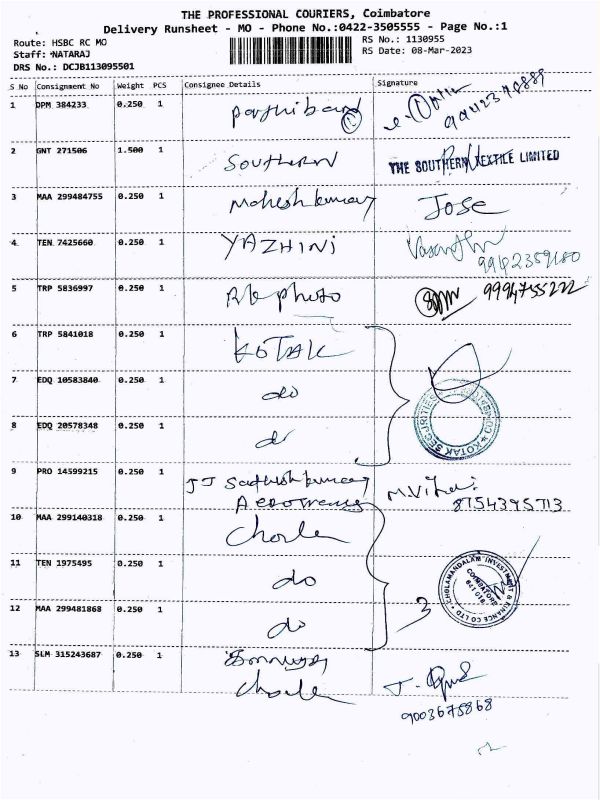 THE PROFESSIONAL COURIERS, Coimbatore
Delivery Runsheet - MO - Phone No.:0422-3505555 - Page No.:1
Route: HSBC RC MO
Staff: NATARAJ
DRS No.: DCJB113095501
RS No.: 1130955
RS Date: 08-Mar-2023
S No Consignment No Weight PCS Consignee Details Signature
1 DPM 384233 0.250 1
2 GNT 271506 1.500 1 SOUTHERN THE SOUTHERN TEXTILE LIMITED
3 MAA 299484755 0.250 1 Maheshkumar Jose
4 TEN 7425660 0.250 1 YAZHINI
5 TRP 5836997 0.250 1 photo 9994755222
6 TRP 5841018 0.250 1 KOTAK
7 EDQ 10583840 0.250 1 do
8 EDQ 20578348 0.250 1 do
KOTAK SECURITIES
9 PRO 14599215 0.250 1 JJ Sathishkumar
8754395713
10 MAA 299140318 0.250 1 Chola
11 TEN 1975495 0.250 1 do
CHOLAMANDALAM INVESTMENT & FINANCE CO LTD
COIMBATORE
641 018
12 MAA 299481868 0.250 1 do 3
13 SLM 315243687 0.250 1
Chola
9003675868